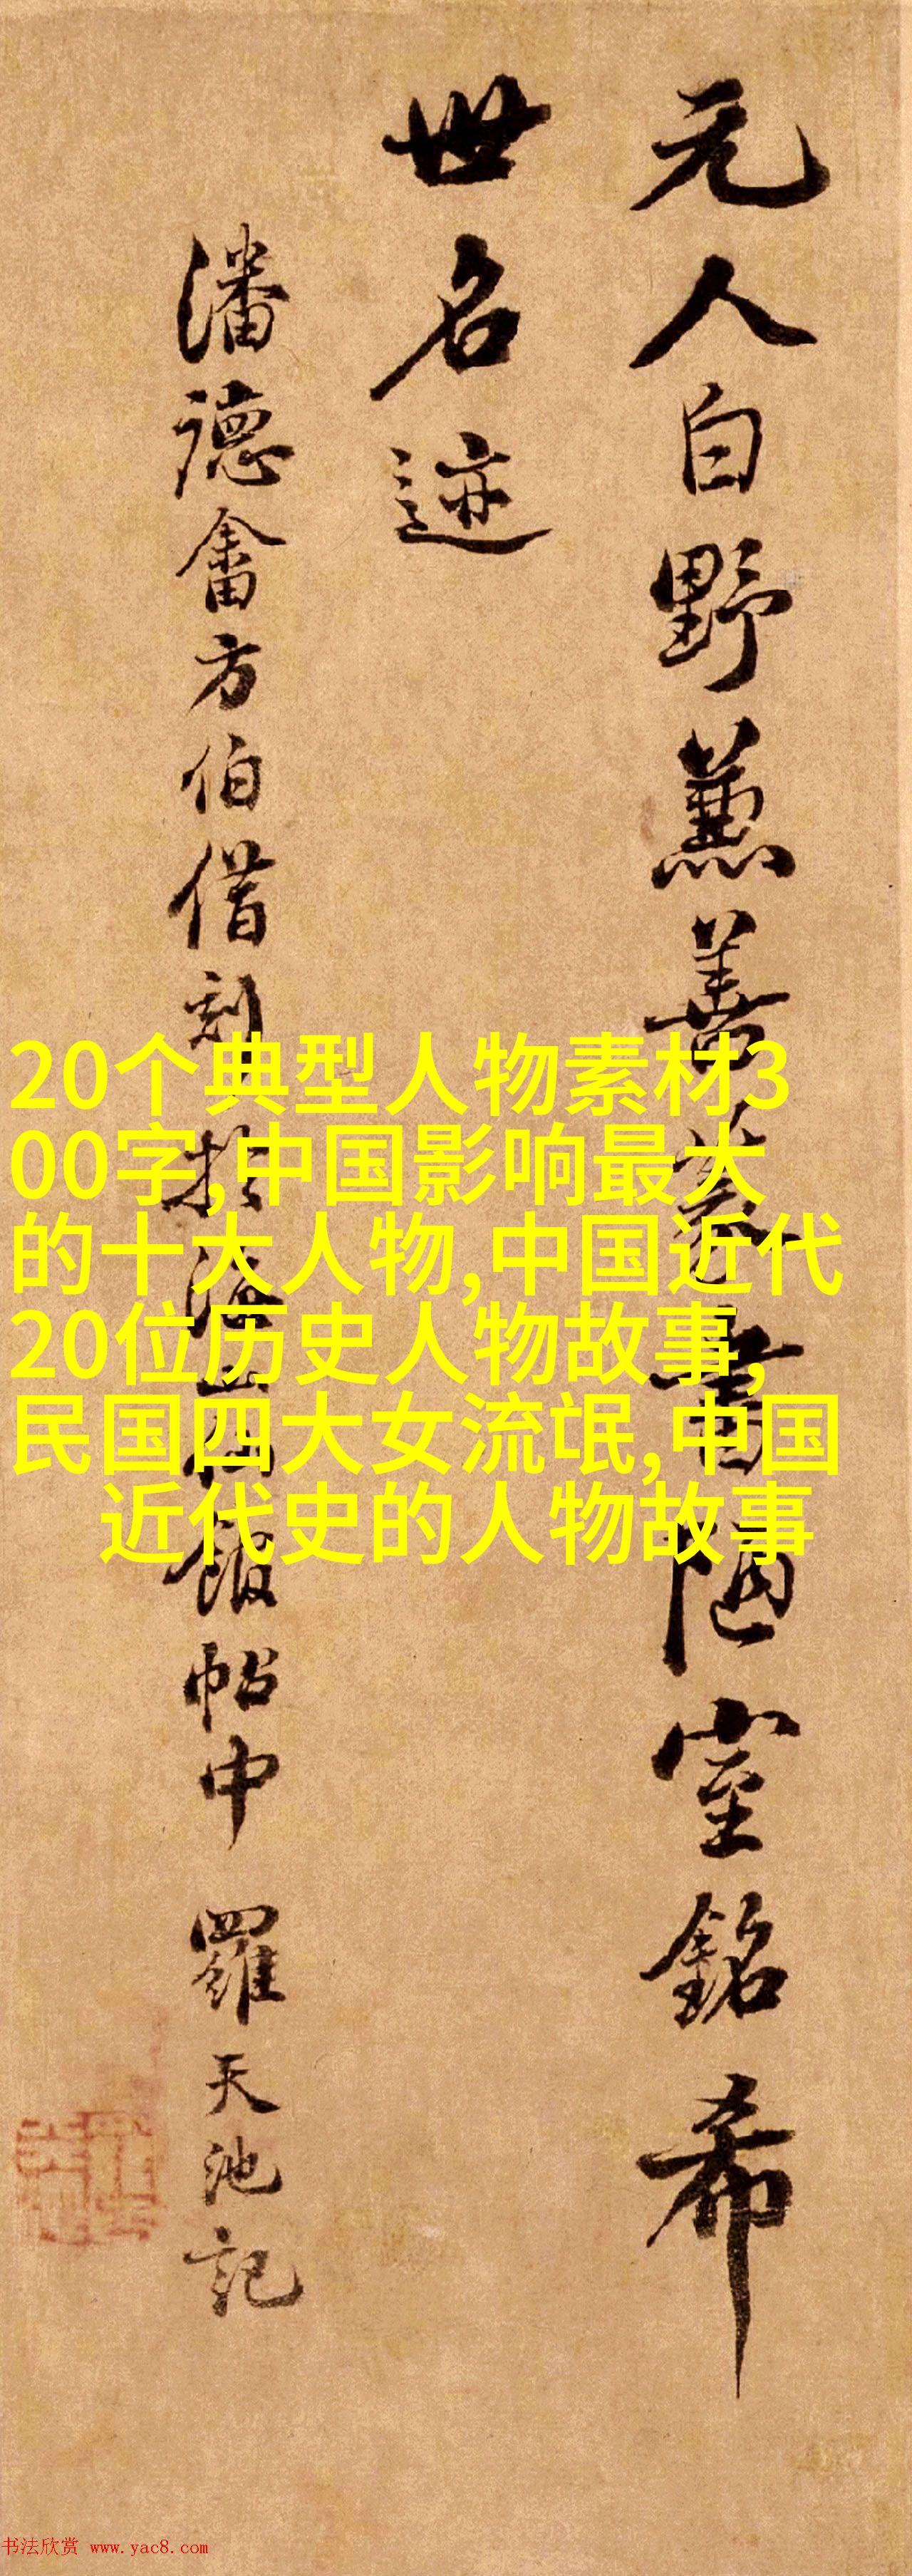 元人白野薫善篆書陋室銘希
世名迹
潘德畬方伯借刻於海山仙館帖中 羅天池記
20个典型人物素材3
00字,中国影响最大
的十大人物,中国近代
20位历史人物故事,
民国四大女流氓,中国
近代史的人物故事
书法欣赏 www.yac8.com